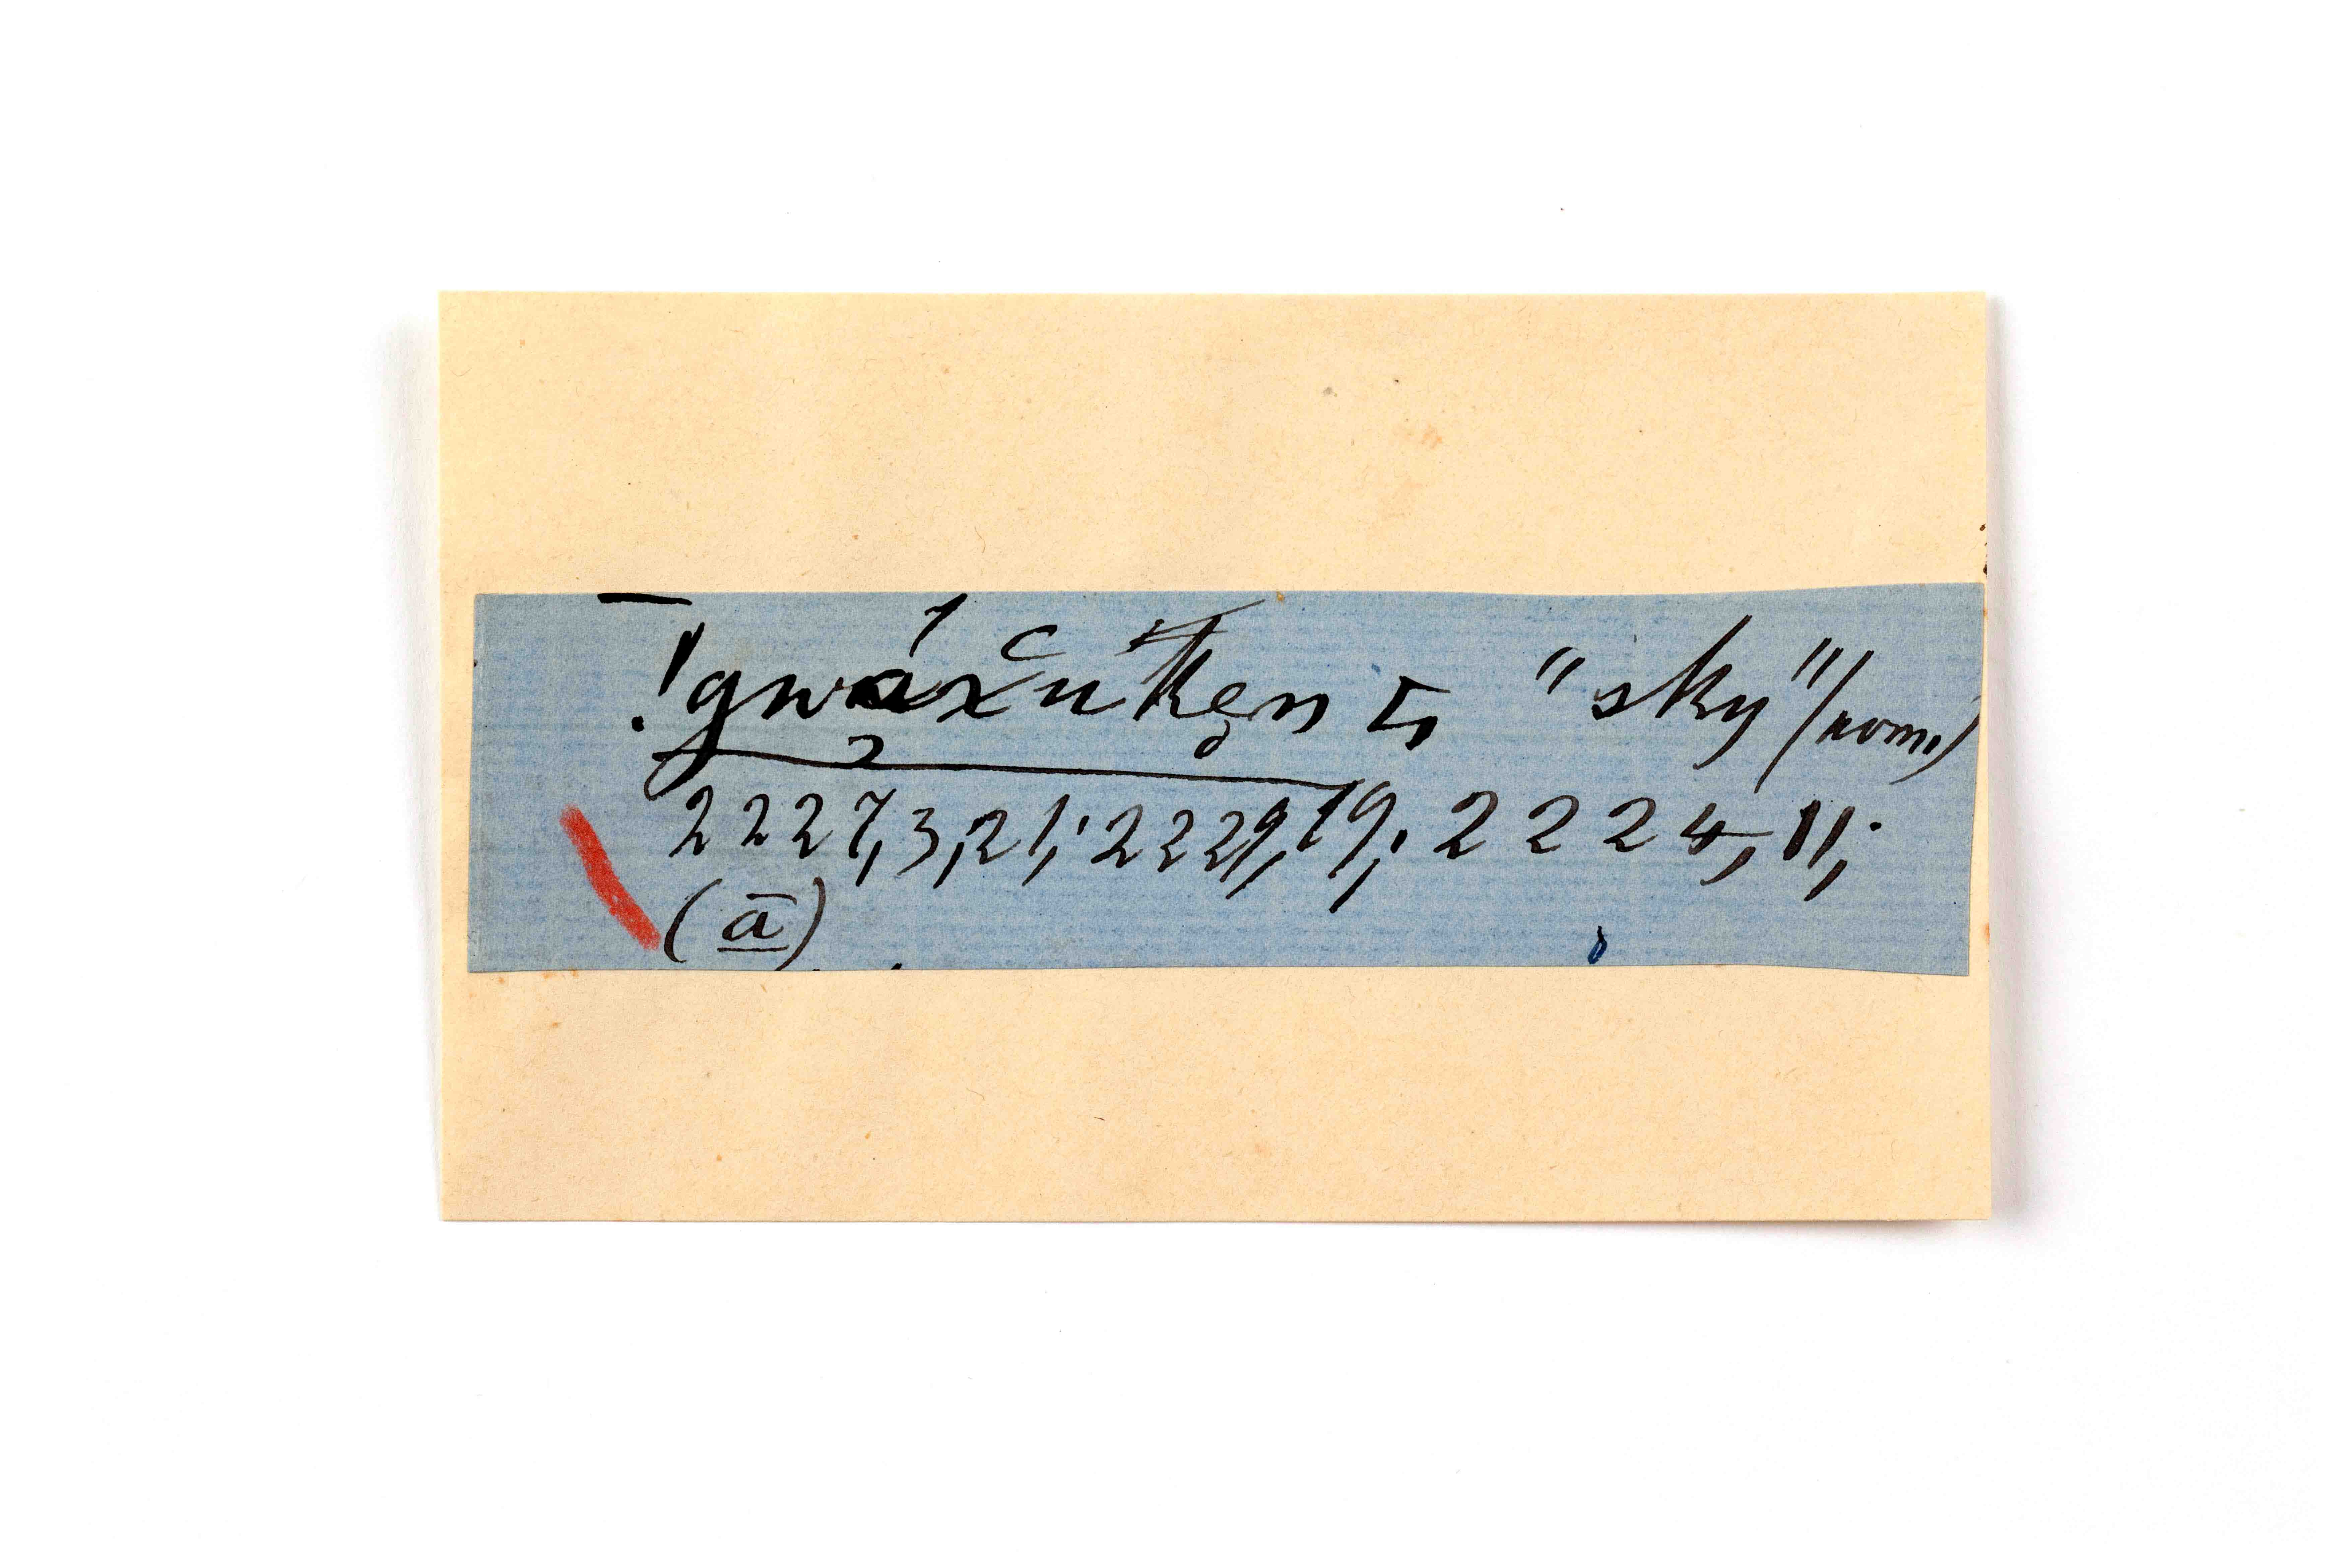 !gwá̰x̆uken̥ ⊏, "sky" (nom.)
2227,3,21; 2229,19; 2224,11;
(ā)